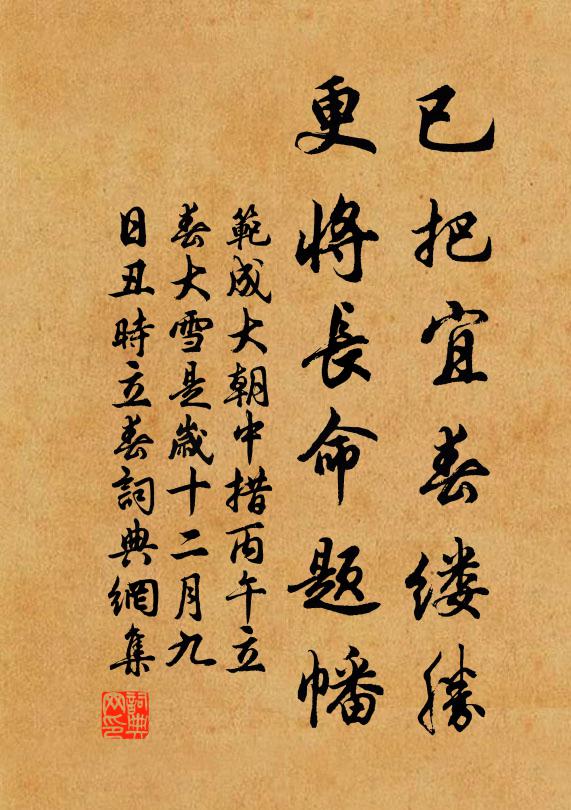 已把宜春缕勝
更將長命題幡
範成大朝中措丙午立
春大雪是歲十二月九
日丑時立春詞典網集
詞典网印